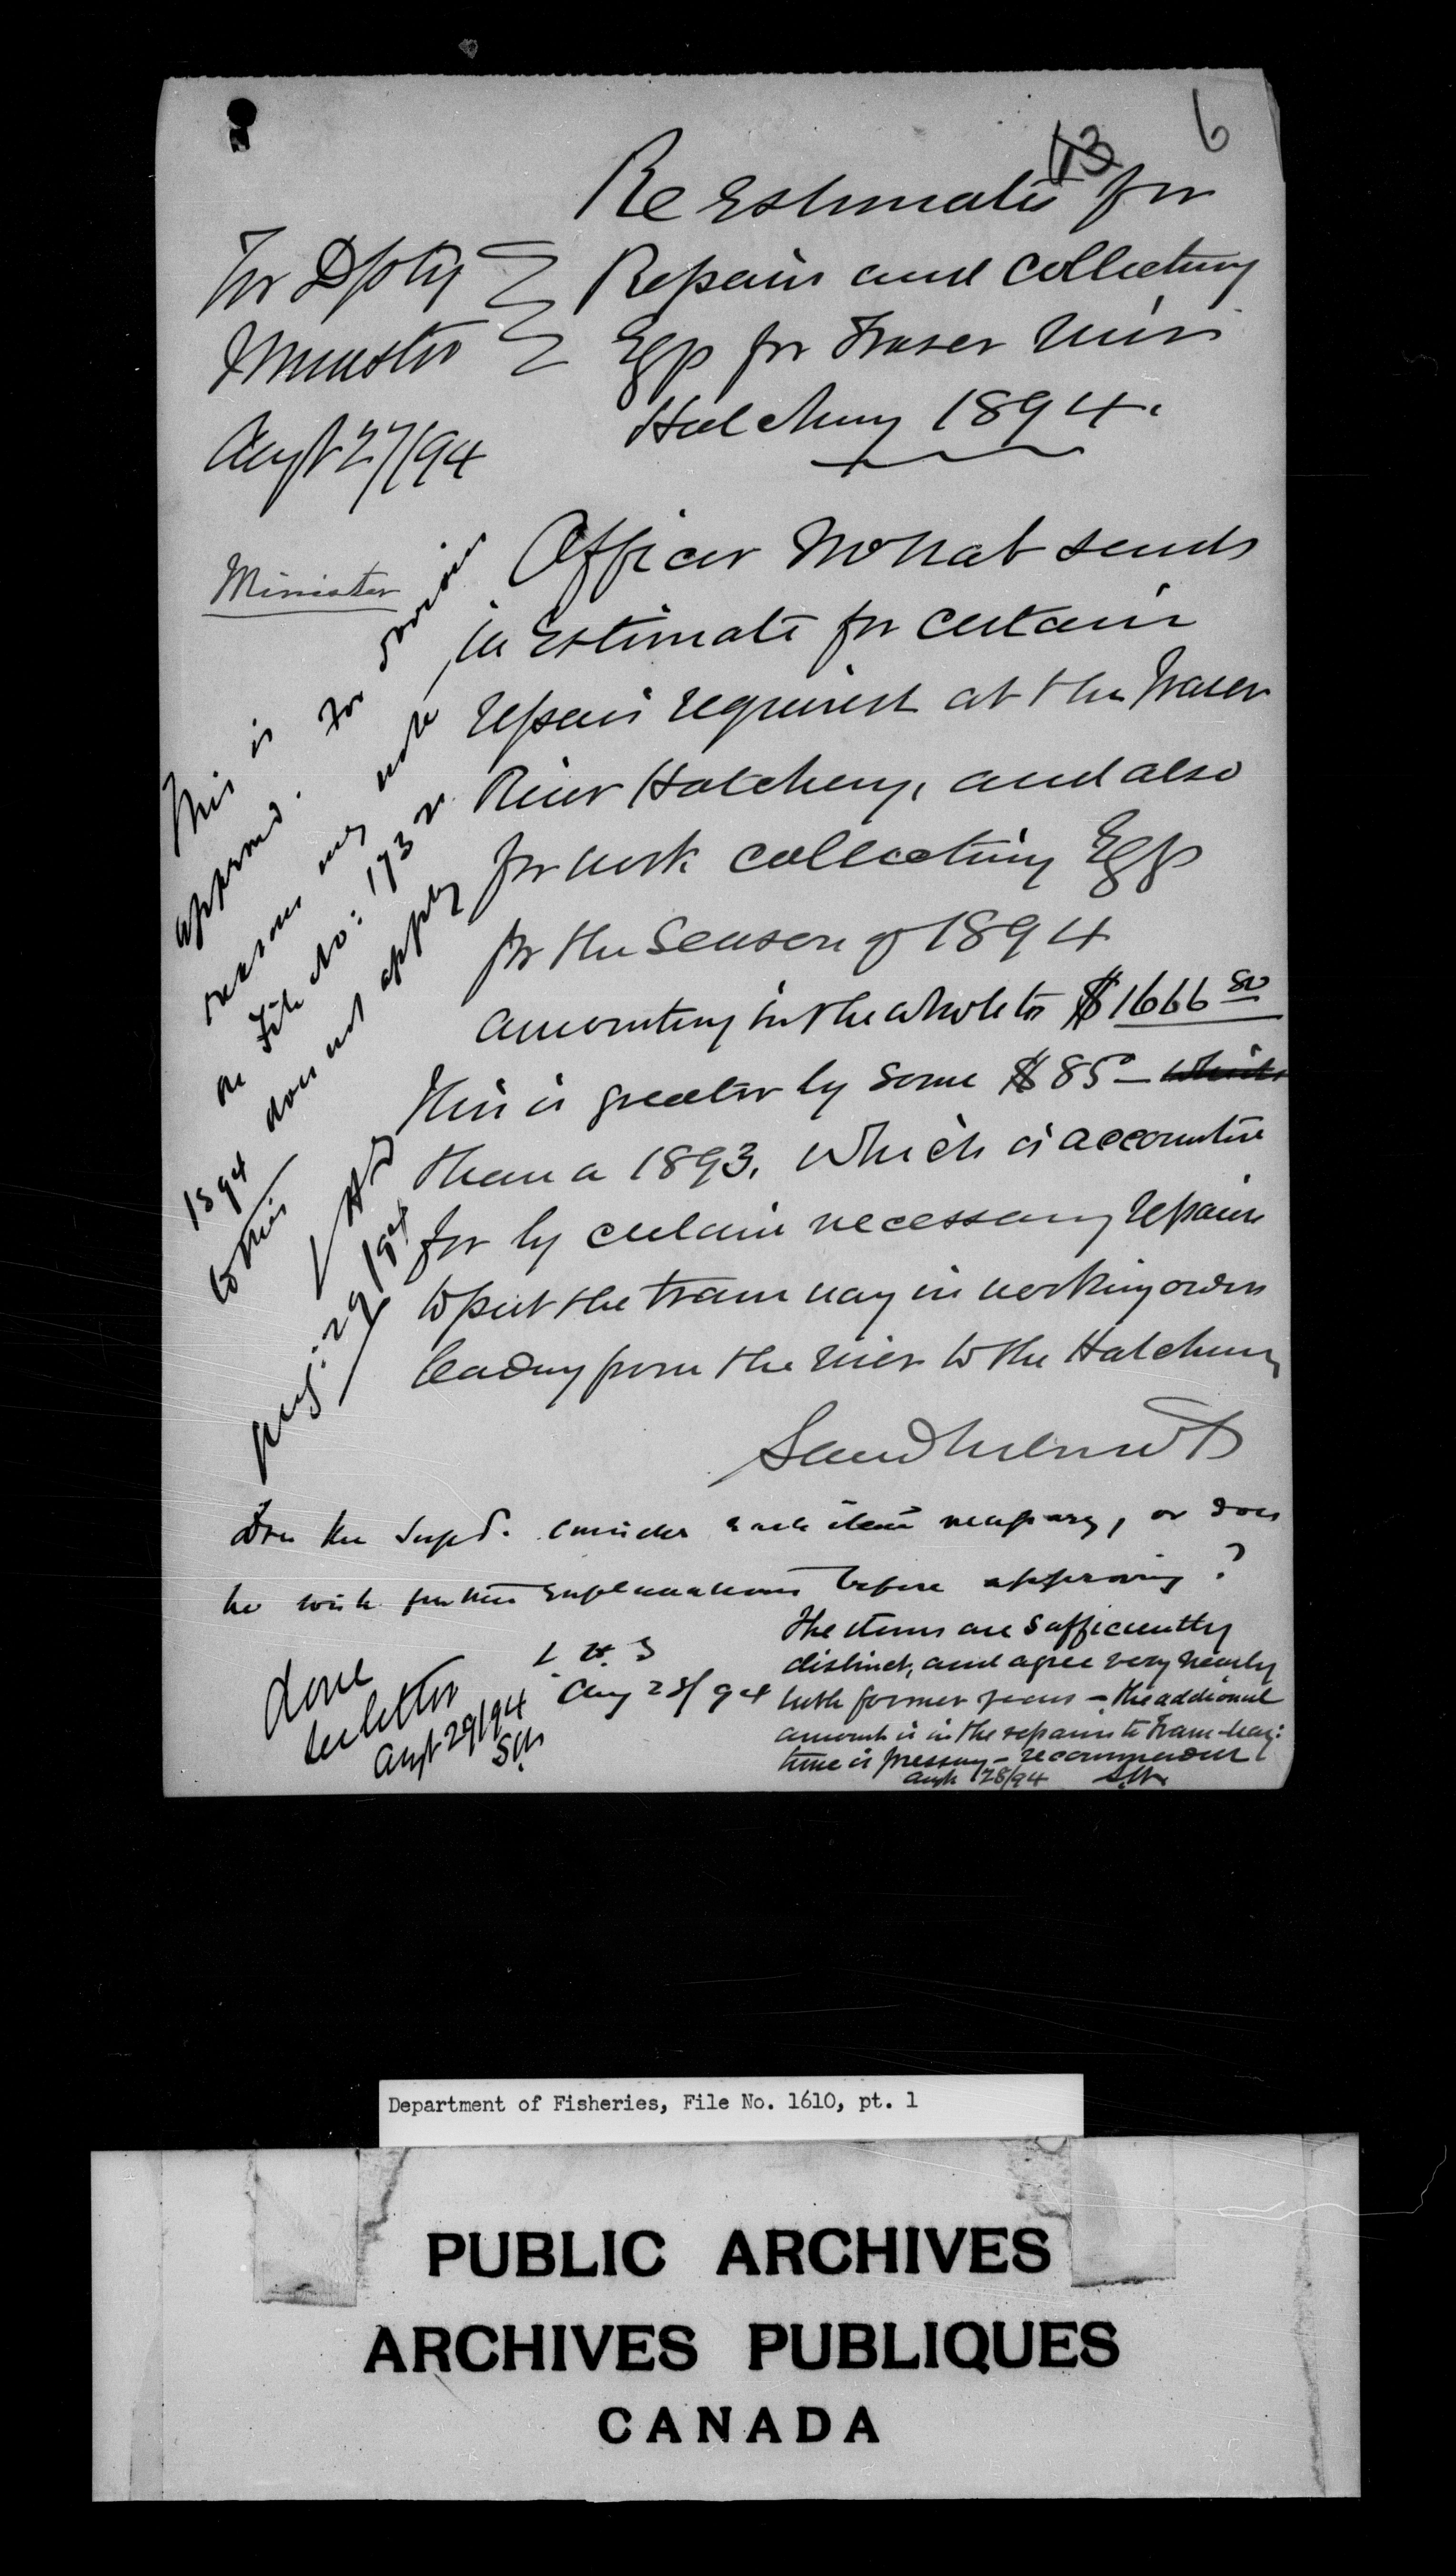 6
13
Re Estimate for
Repairs and collecting
Eggs for Fraser River
Hatchery 1894.
For Dpoty
Minister
Augt 27/94
Minister
Officer McNab sends
in Estimate for certain
repairs required at the Fraser
River Hatchery, and also
for work collecting Eggs
for the Season of 1894
amounting in the whole to $1666 80
This is greater by some $85 — which
than in 1893. Which is accounted
for by certain necessary repairs
to put the tramway in working order
leading from the river to the Hatchery
Saml Wilmot
This is for
approval.
reasons
on File No: 173 of
1894 does not apply
to this
Aug: 29/94
Does the Supt. consider each item necessary, or does
he wish further explanations before approving?
Aug 28/94
The items are sufficiently
distinct, and agree very nearly
with former years — the additional
amount is in the repairs to tram-way:
time is pressing — recommended
Augt 28/94 SW
done
letter
Augt 29/94
SW
Department of Fisheries, File No. 1610, pt. 1
PUBLIC ARCHIVES
ARCHIVES PUBLIQUES
CANADA